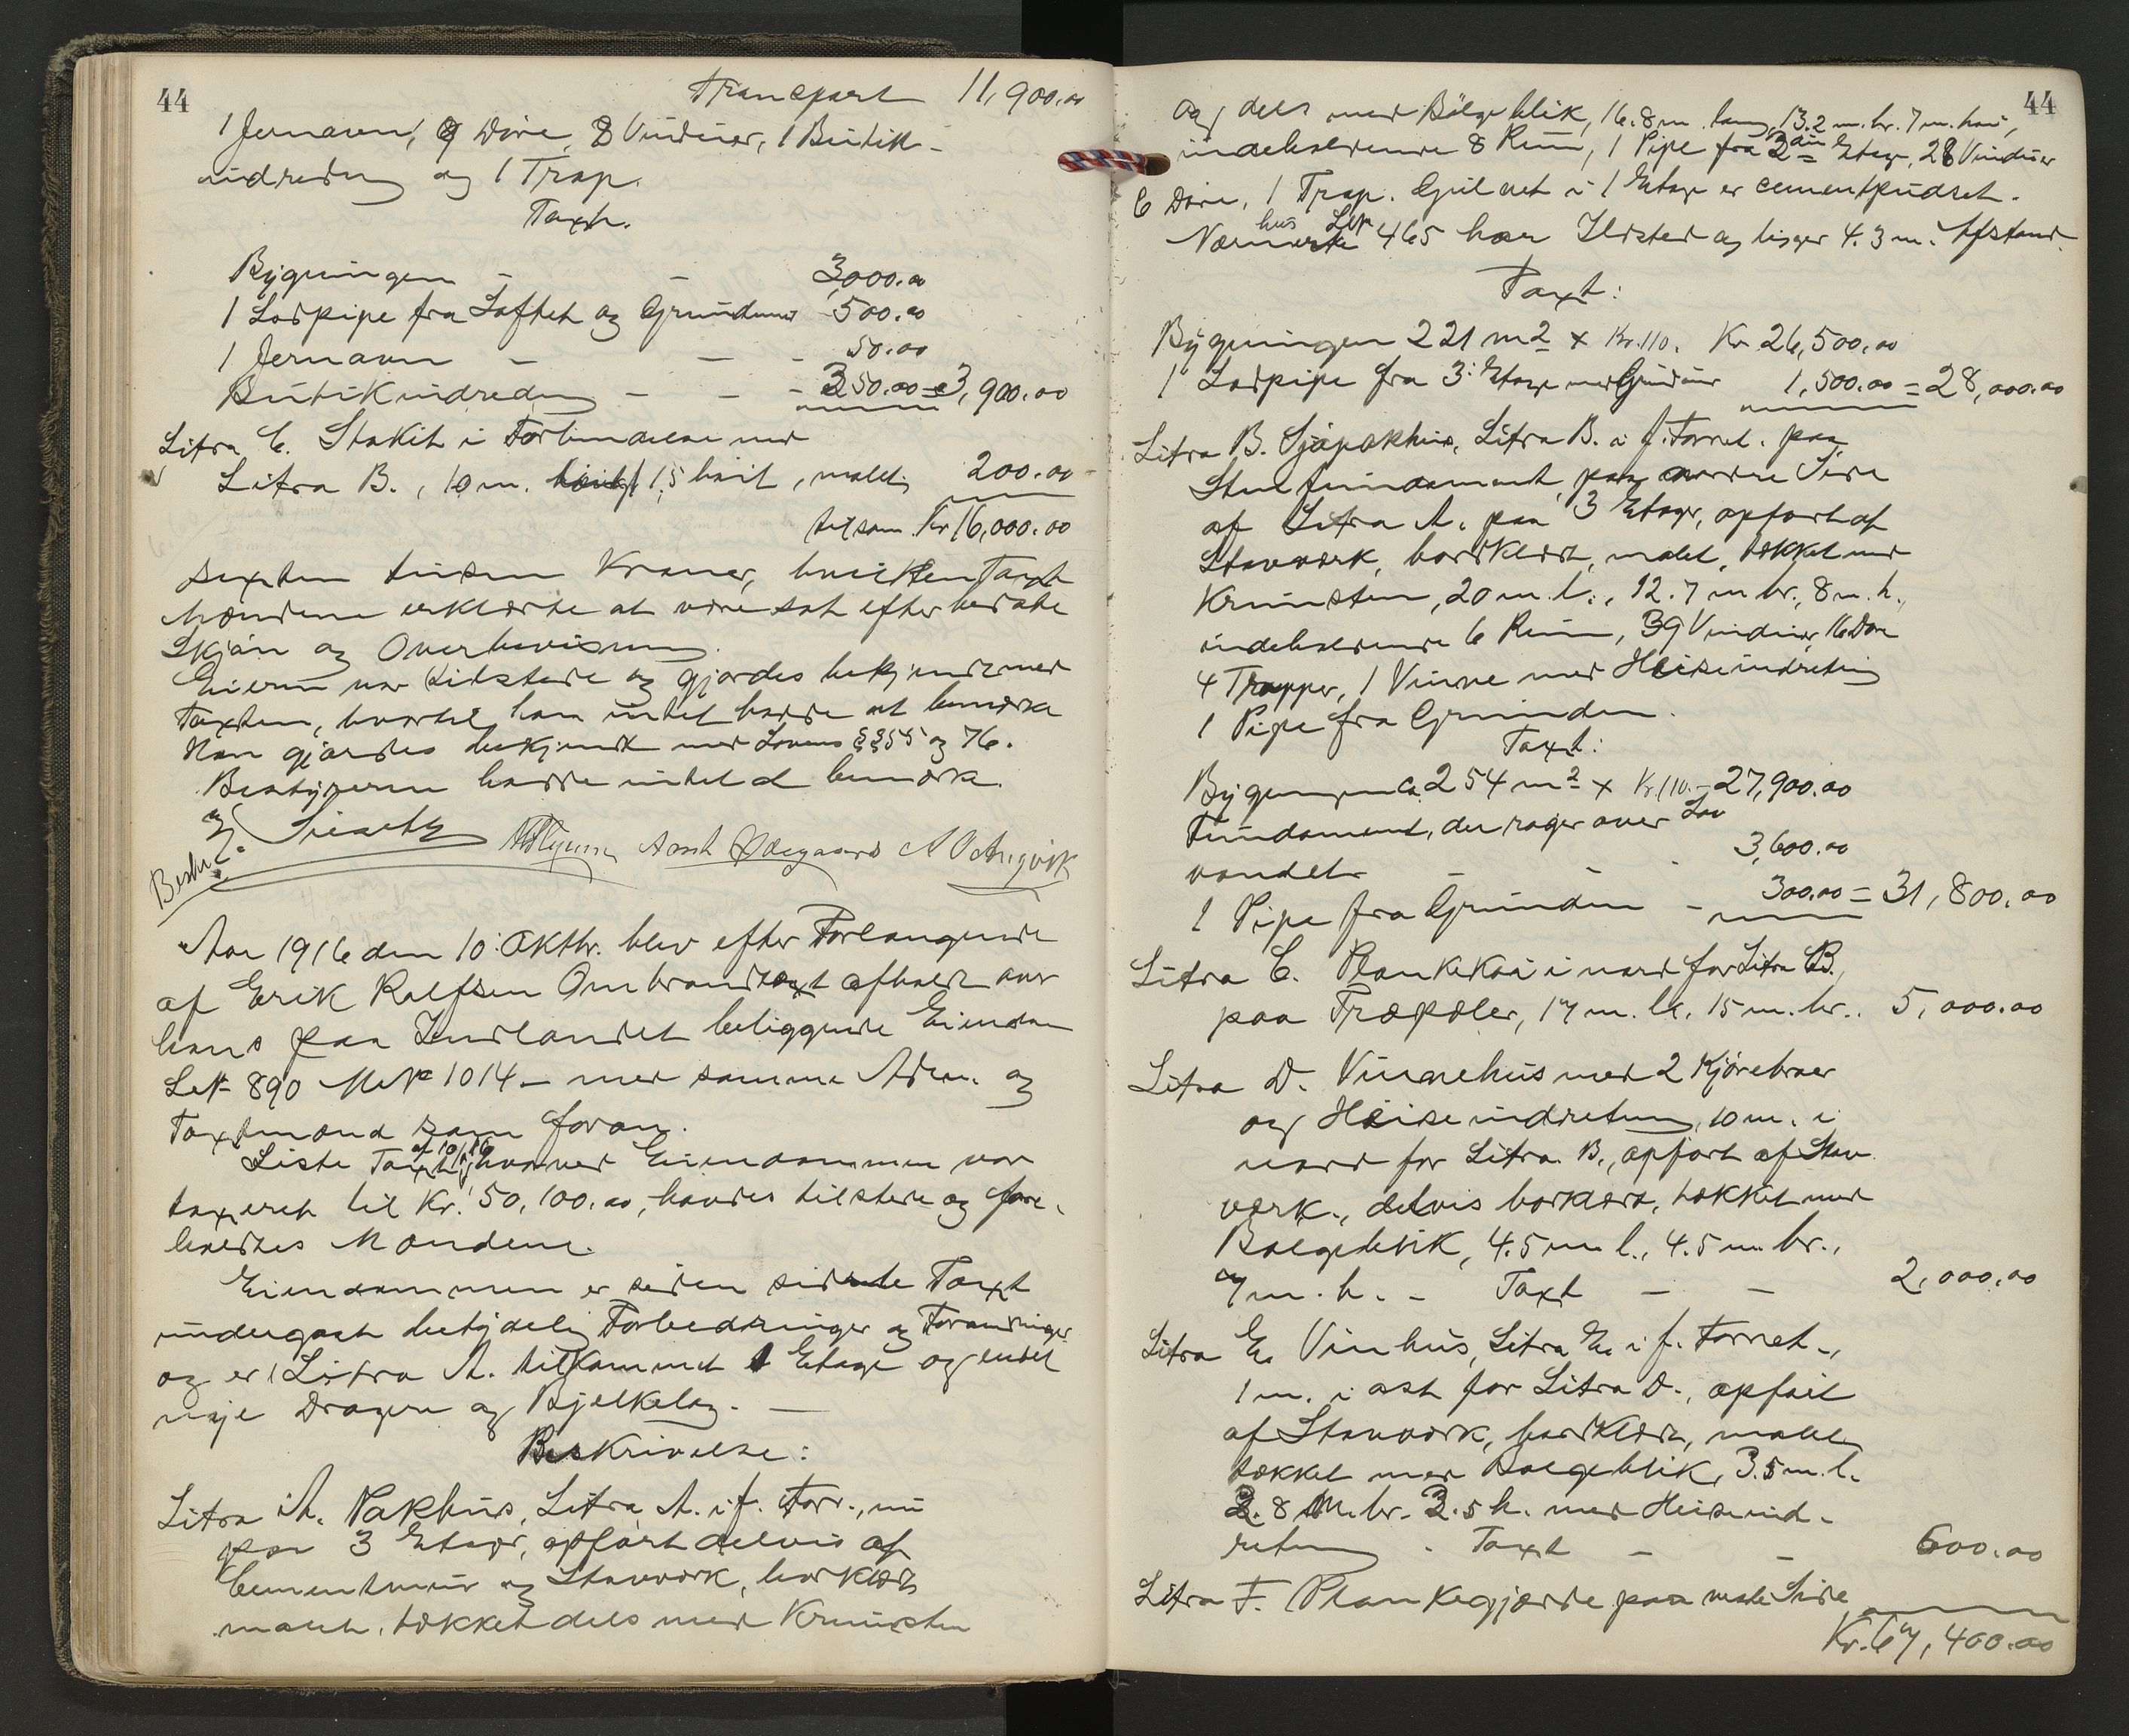 44
Transport 11,900.00
1 Jernovn, 9 Döre, 8 Vinduer, 1 Butik-
indredng og 1 Trap.
Taxt.
Bygningen - - 3,000.00
1 Lodpipe fra Loftet og Grundmur 500.00
1 Jernovn - - - 50.00
Butikindredng - - - 350.00 = 3,900.00
Litra C. Stakit i Forbindelse med
Litra B., 10 m. langt 1,5 höit, malet, 200.00
tilsam. Kr 16,000.00
sexten tusen Kroner, hvilken Taxt
Mændene erklærte at være sat efter bedste
Skjön og Overbevisning.
Eieren var tilstede og gjordes bekjendt med
Taxten, hvortil han intet hadde at bemerke
Han gjordes bekjendt med Lovens §§ 55 og 76.
Bestyreren hadde intet at bemerke.
Aar 1916 den 10. Oktbr. blev efter Forlangende
af Erik Rolfsen Ombrandtaxt afholdt over
hans paa Indlandet beliggende Eiendom
LeN 890 MeNo 1014 - med samme Adm. og
Taxtmænd som foran.
Sidste Taxt, af 10/ 16 hvorved Eiendommen var
taxeret til Kr. 50,100.00, havdes tilstede og fore-
holdtes Mændene.
Eiendommen er siden sidste Taxt
undergaat betydelig Forbedringer og Forandringer
og er Litra A. tilkommet 1 Etage og endel
nye Dragere og Bjelkelag. -
Beskrivelse:
Litra A. Pakhus, Litra A. i f. Forr., nu
paa 3 Etager, opfört delvis af
Cementmur og Stavverk, bordklædt
malet, tækket dels med Kruusten
44
og dels med Bölgeblik, 16.8 m. lang, 13.2 m. br. 7 m. höi,
indeholdende 8 Rum, 1 Pipe fra 2den Etage, 28 Vinduer
6 Döre, 1 Trap. Gulvet i 1 Etage er cementpudset.
Nærmeste hus LeN 465 har Ildsted og ligger 4.3 m. Afstand.
Taxt:
Bygningen 221 m2 x Kr. 110. Kr 26,500.00
1 Lodpipe fra 3. Etage med Grundmur 1,500.00 = 28,000.00
Litra B. Sjöpakhus, Litra B. i f. Forret. paa
Stenfundament, paa nordre Side
af Litra A. paa 3 Etager, opfört af
Stavverk, bordklædt, malet, tækket med
Kruusten, 20 m. l., 12.7 m br., 8 m. h.,
indeholdende 6 Rum, 39 Vinduer, 16 Döre
4 Trapper, 1 Vinde med Heiseindretning
1 Pipe fra Grunden.
Taxt:
Bygningen ca 254 m2 x Kr. 110. - 27,900.00
Fundament, der rager over Lav
vandet - - 3,600.00
1 Pipe fra Grunden - 300.00 = 31,800.00
Litra C. Plankekai i nord for Litra B.,
paa Træpæler, 17 m. l., 15 m. br.. 5,000.00
Litra D. Vindehus med 2 Kjörebroer
og Heiseindretning, 10 m. i
nord for Litra B., opfört af Stav
værk., delvis bordklædt, tækket med
Bølgeblik, 4.5 m l., 4.5 m br.,
7 m. h. - Taxt - - 2,000.00
Litra E. Vinhus, Litra E. i f. Forret.,
1 m. i öst for Litra D., opfört
af Stavverk, bordklædt, malet
tækket med Bølgeblik, 3.5 m. l.
2.8 m. br. 2.5 h. med Heiseind-
retning. Taxt - - 600.00
Litra F. Plankegjærde paa vestre Side
Kr. 67,400.00